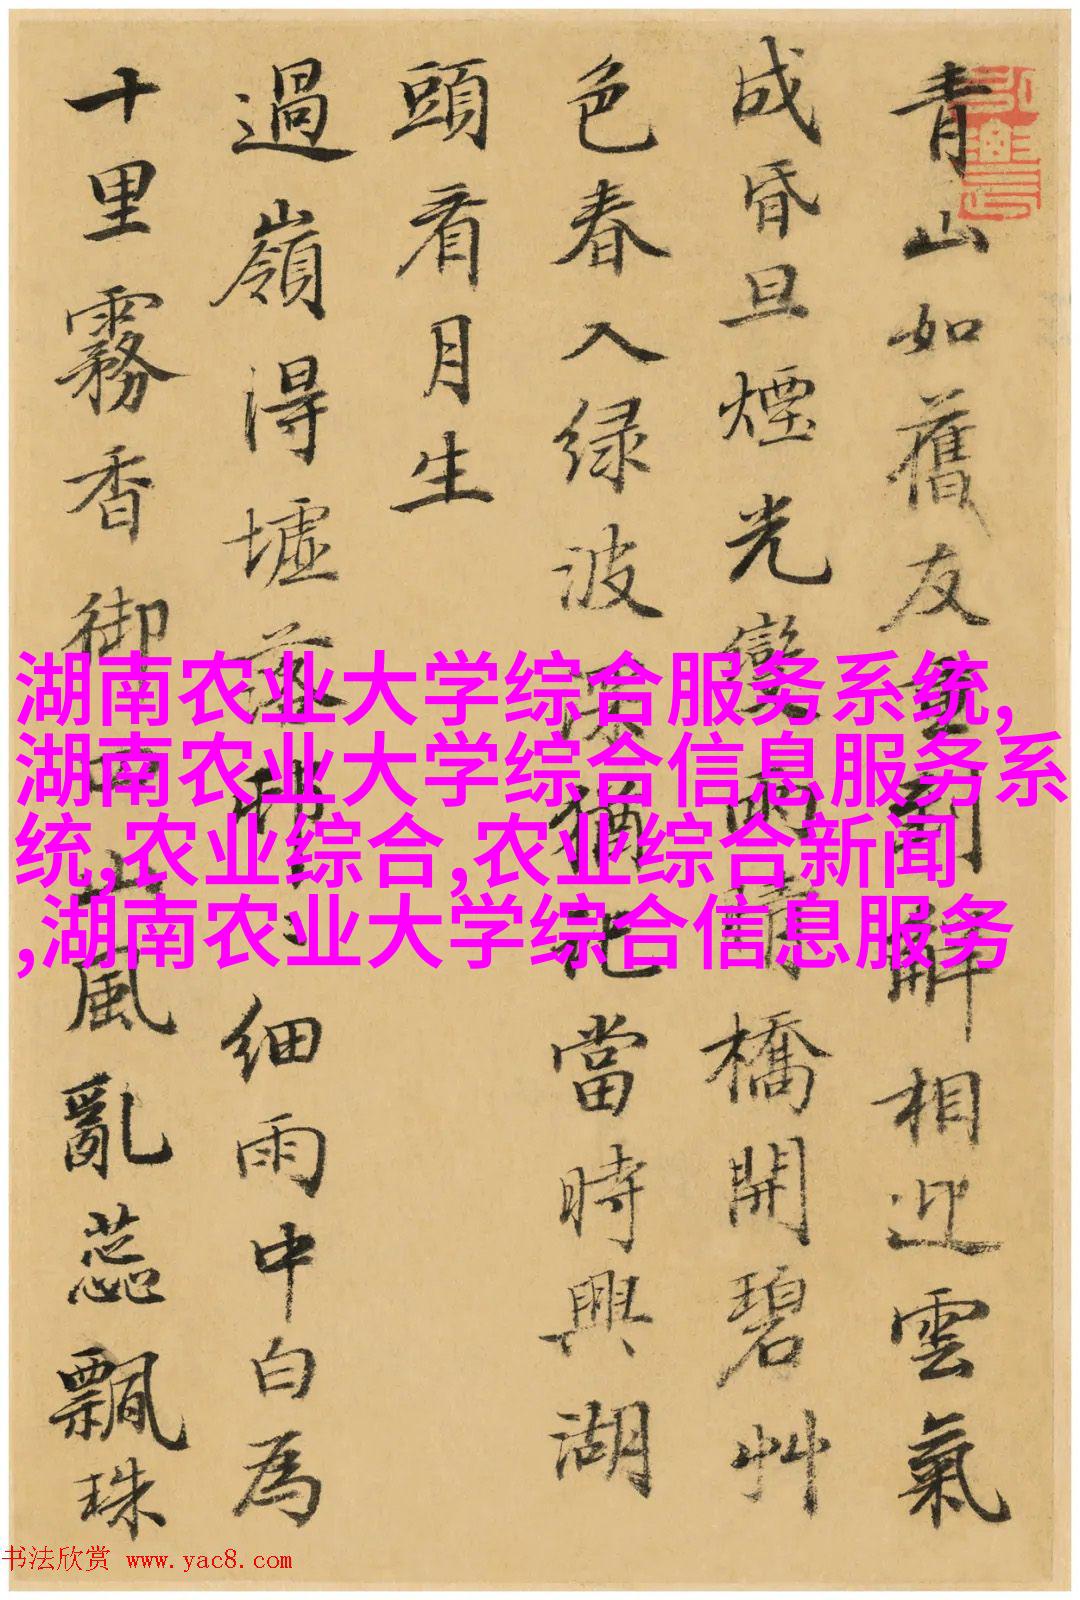 青山如舊友重到解相迎雲氣
成昏旦煙光變雨晴橋開碧艸
色春入绿波猶記當時興湖
頭看月生
過嶺得墟落細雨中白為
十里霧香御山風亂蕊飄珠
湖南农业大学综合服务系统,
湖南农业大学综合信息服务系
统,农业综合,农业综合新闻
,湖南农业大学综合信息服务
书法欣赏 www.yac8.com